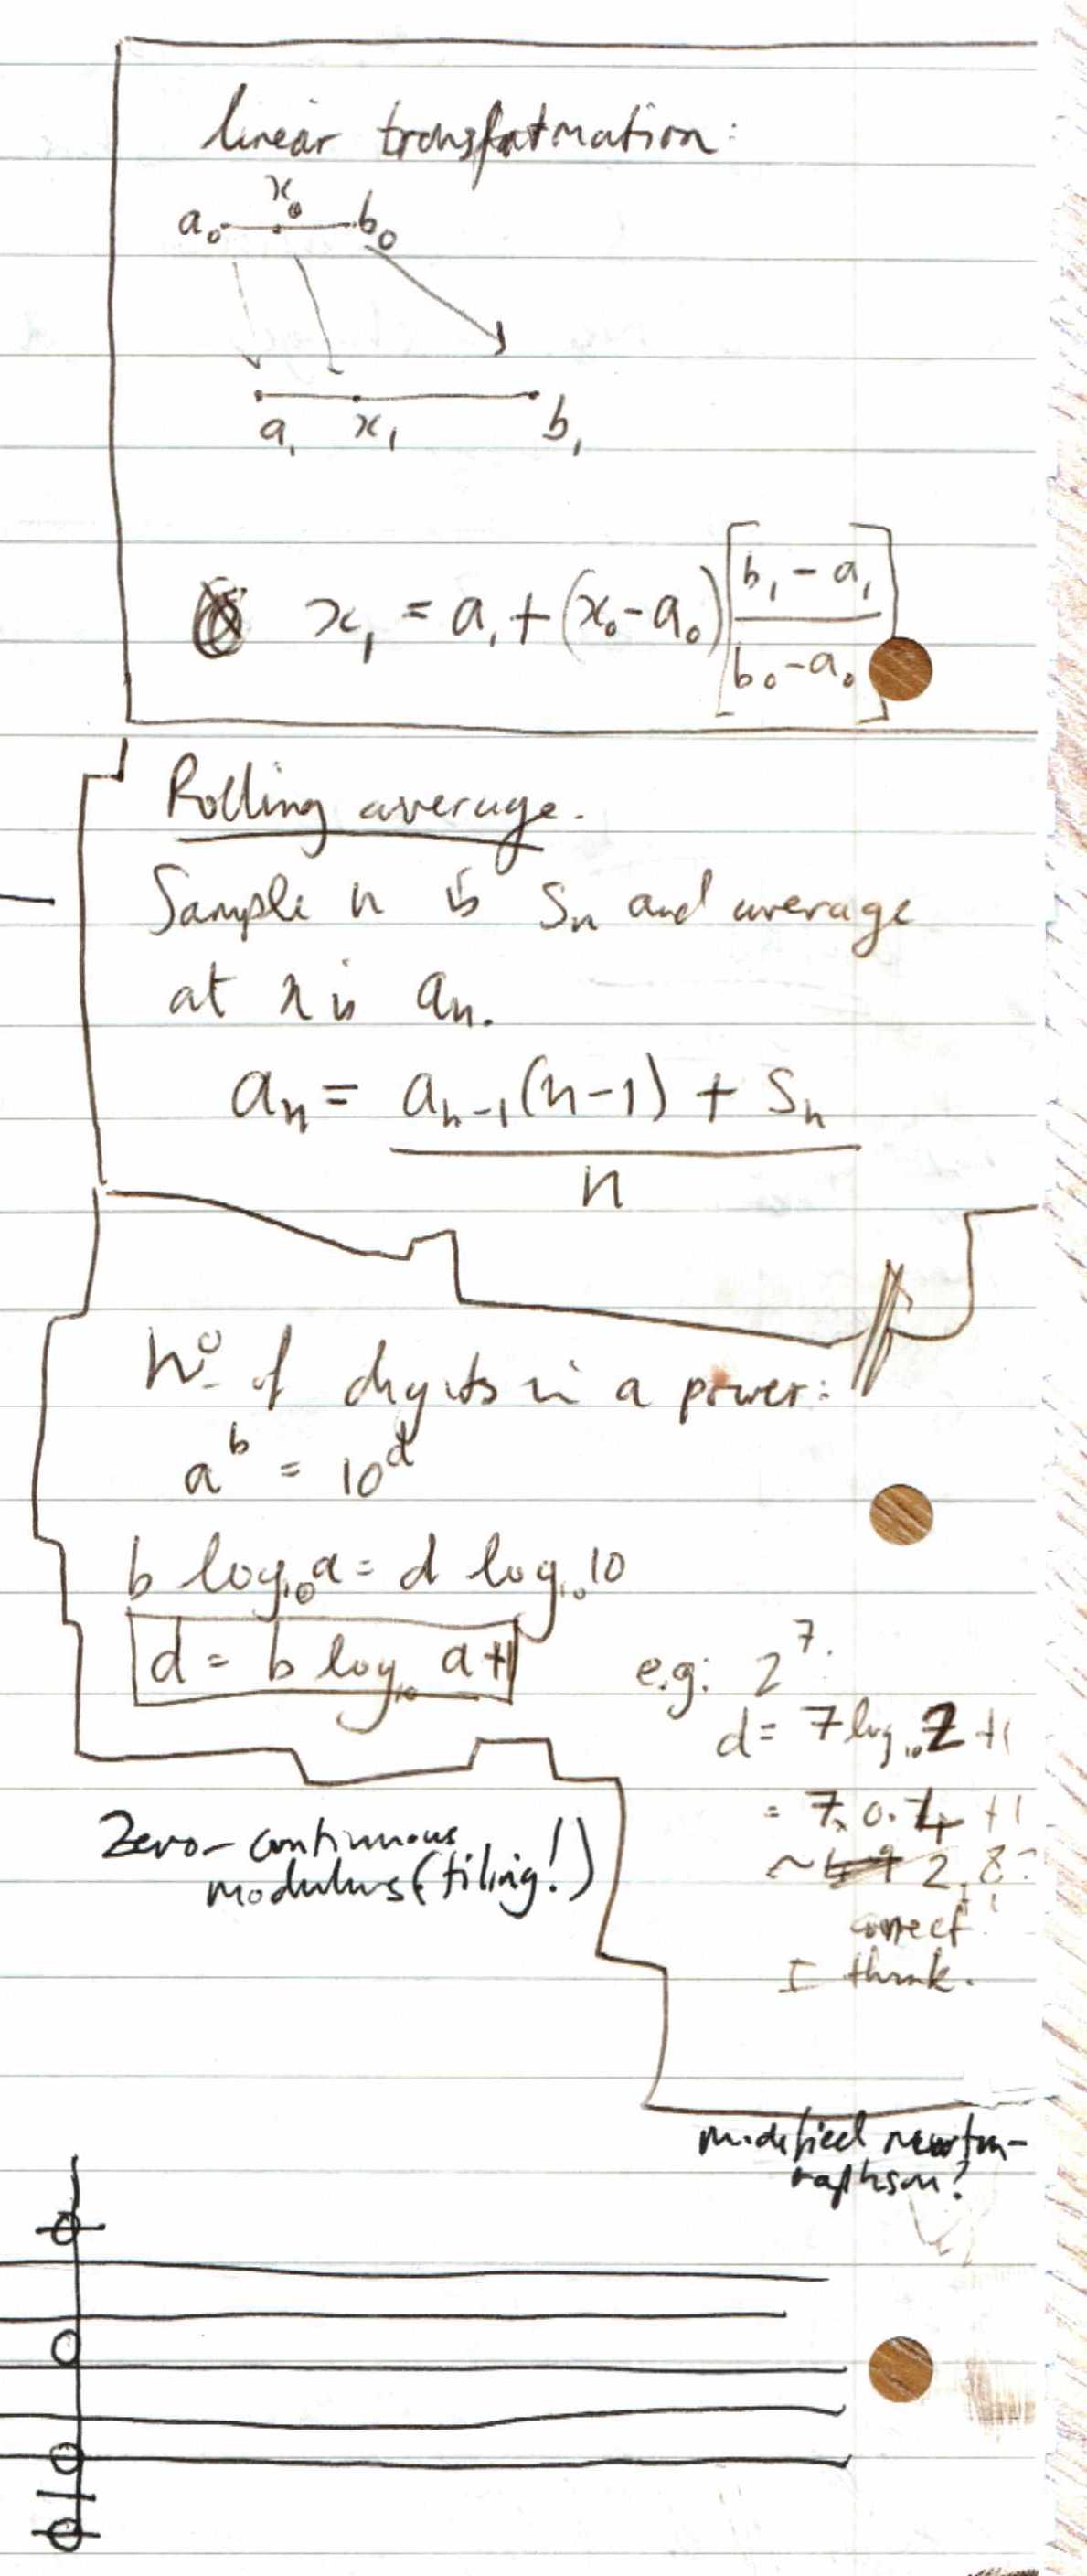 linear transformation:
x₀
a₀ b₀
a₁ x₁ b₁
x₁ = a₁ + (x₀ - a₀) [ (b₁ - a₁) / (b₀ - a₀) ]
Rolling average.
Sample n is Sₙ and average
at x is aₙ.
aₙ = aₙ₋₁(n-1) + Sₙ
n
Nº of digits in a power:
aᵇ = 10ᵈ
b log₁₀ a = d log₁₀ 10
d = b log₁₀ a + 1
e.g: 2⁷.
d = 7 log₁₀ 2 + 1
= 7 x 0.
+1
~ 2.8
correct!
I think.
Zero-continuous
modulus (tiling!)
modified newton-
raphson?